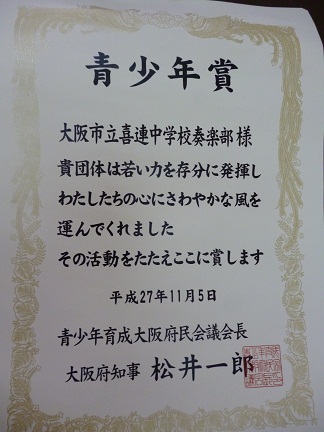 青少年賞
大阪市立喜連中学校奏楽部様
貴団体は若い力を存分に発揮し
わたしたちの心にさわやかな風を
運んでくれました
その活動をたたえここに賞します
平成27年11月5日
青少年育成大阪府民会議会長
大阪府知事 松井一郎